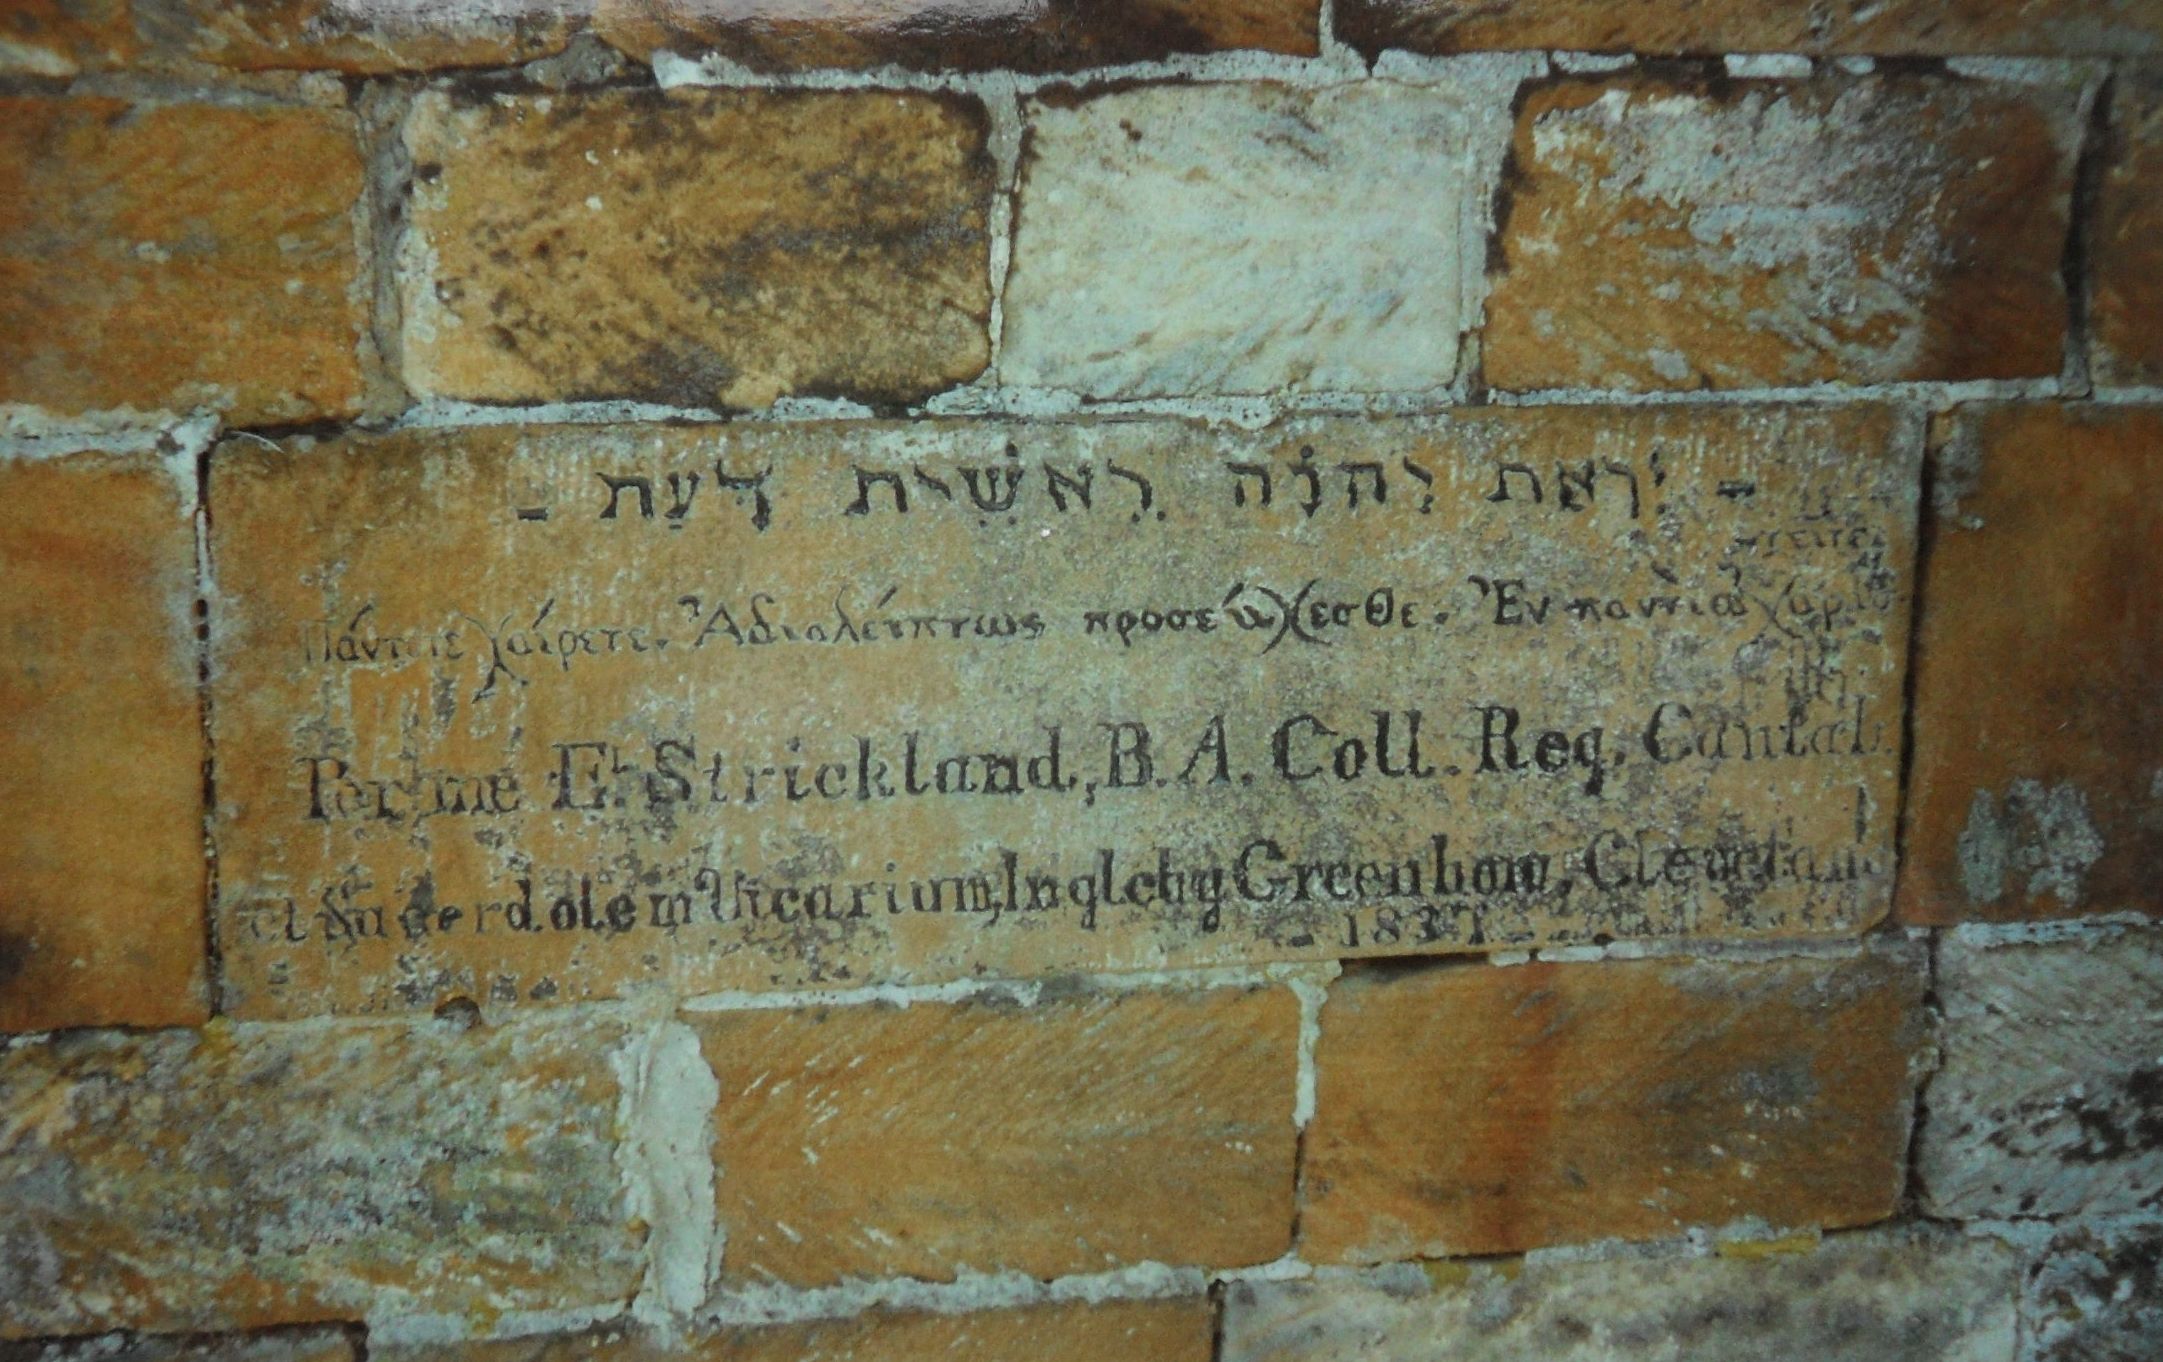 - יִרְאַת יְהוָֹה רֵאשִׁית דָּעַת -
Πάντοτε χαίρετε. Ἀδιαλείπτως προσεύχεσθε. Ἐν παντὶ
Per me Et. Strickland, B.A. Coll. Reg. Cantab.
et Sacerdotem Vicarium, Ingleby Greenhow, Cleveland
- 1837 -